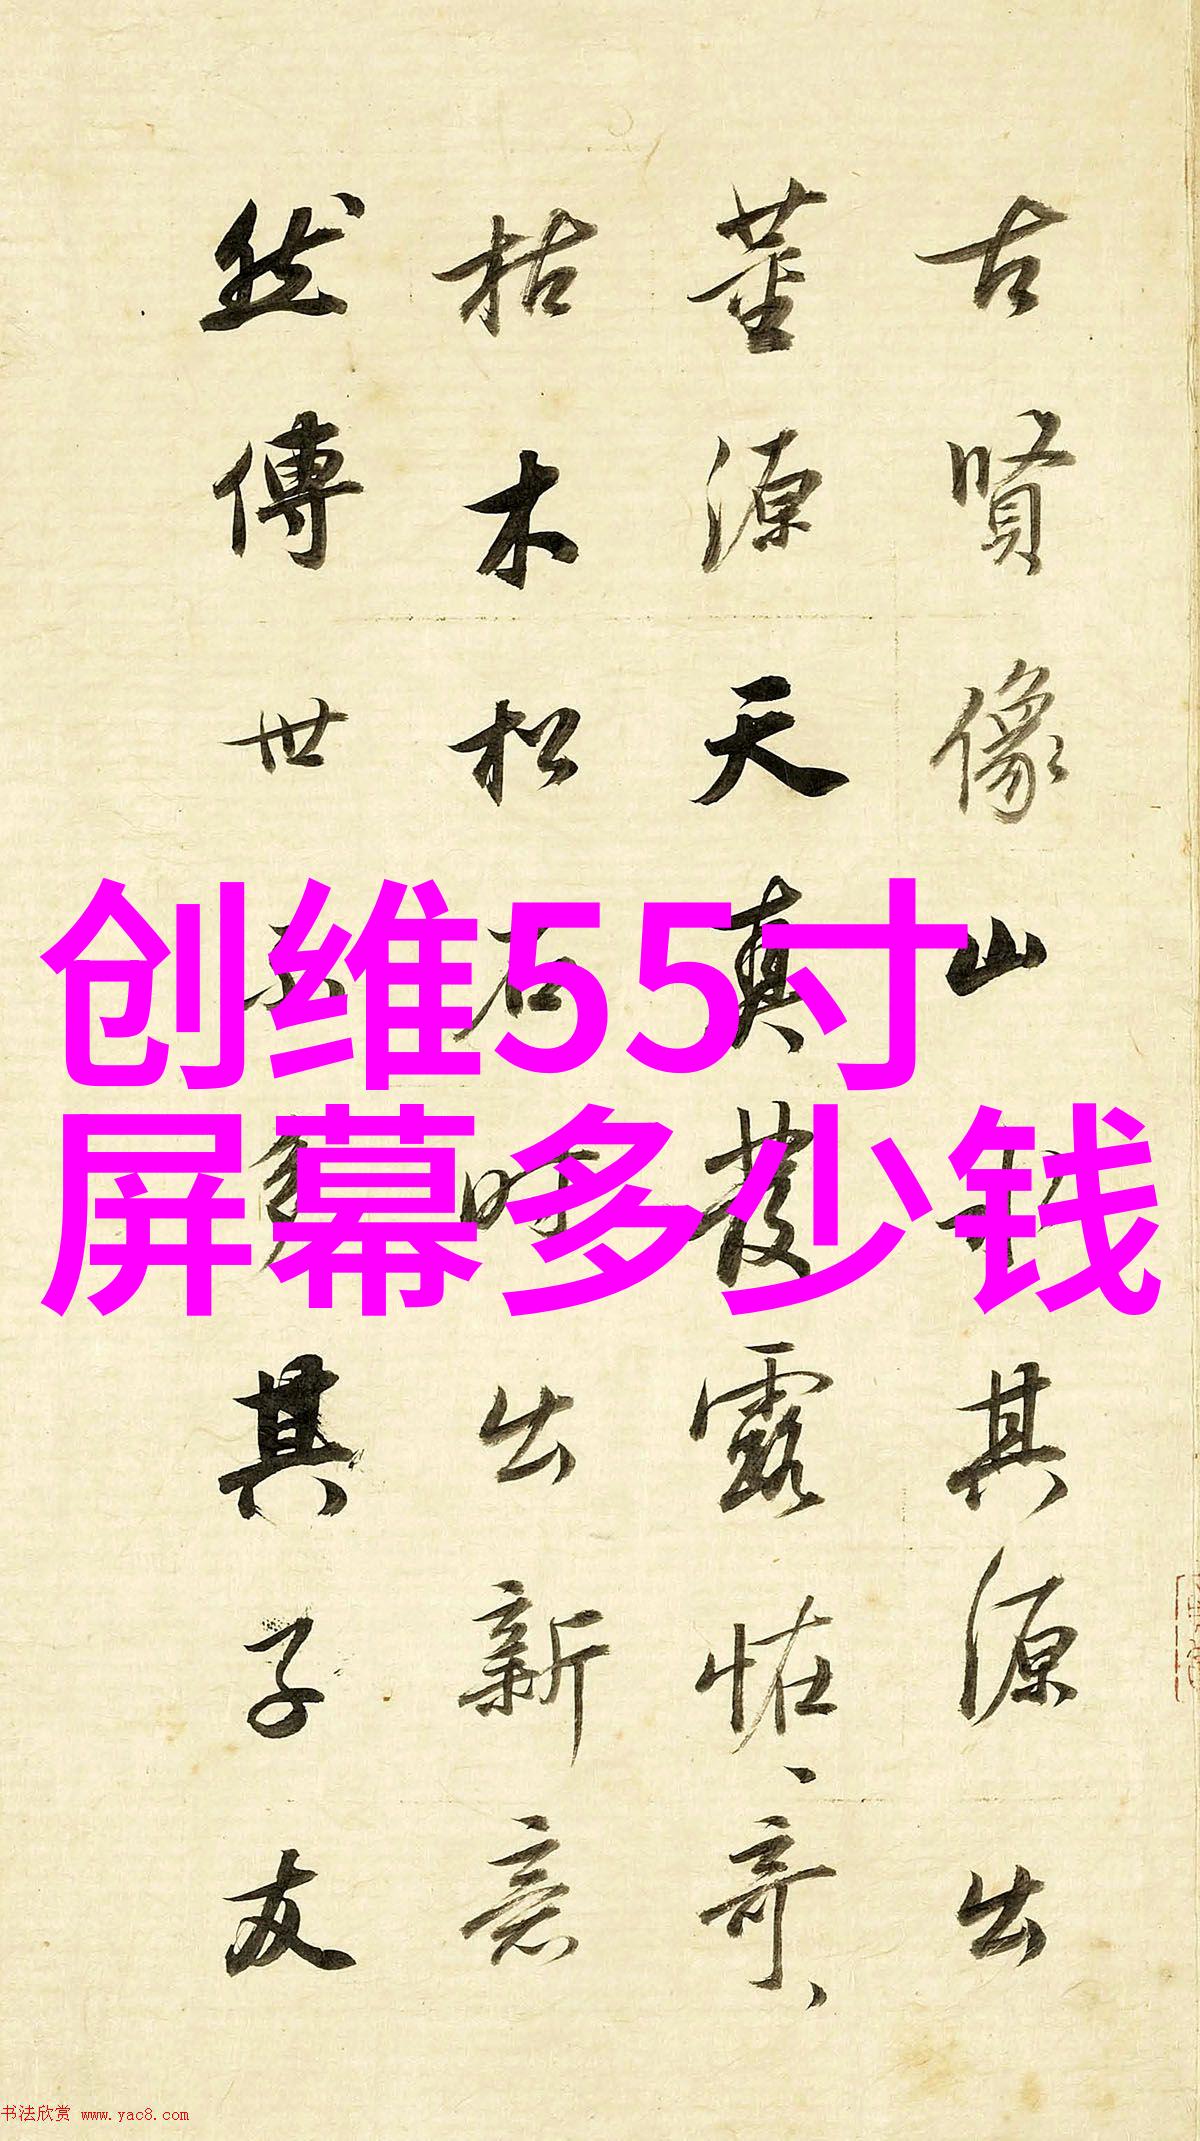 创维55寸
屏幕多少钱
古賢像山水其源出
董源天真發露恠奇
枯木松石時出新意
然傳世不多其子友
书法欣赏 www.yac8.com